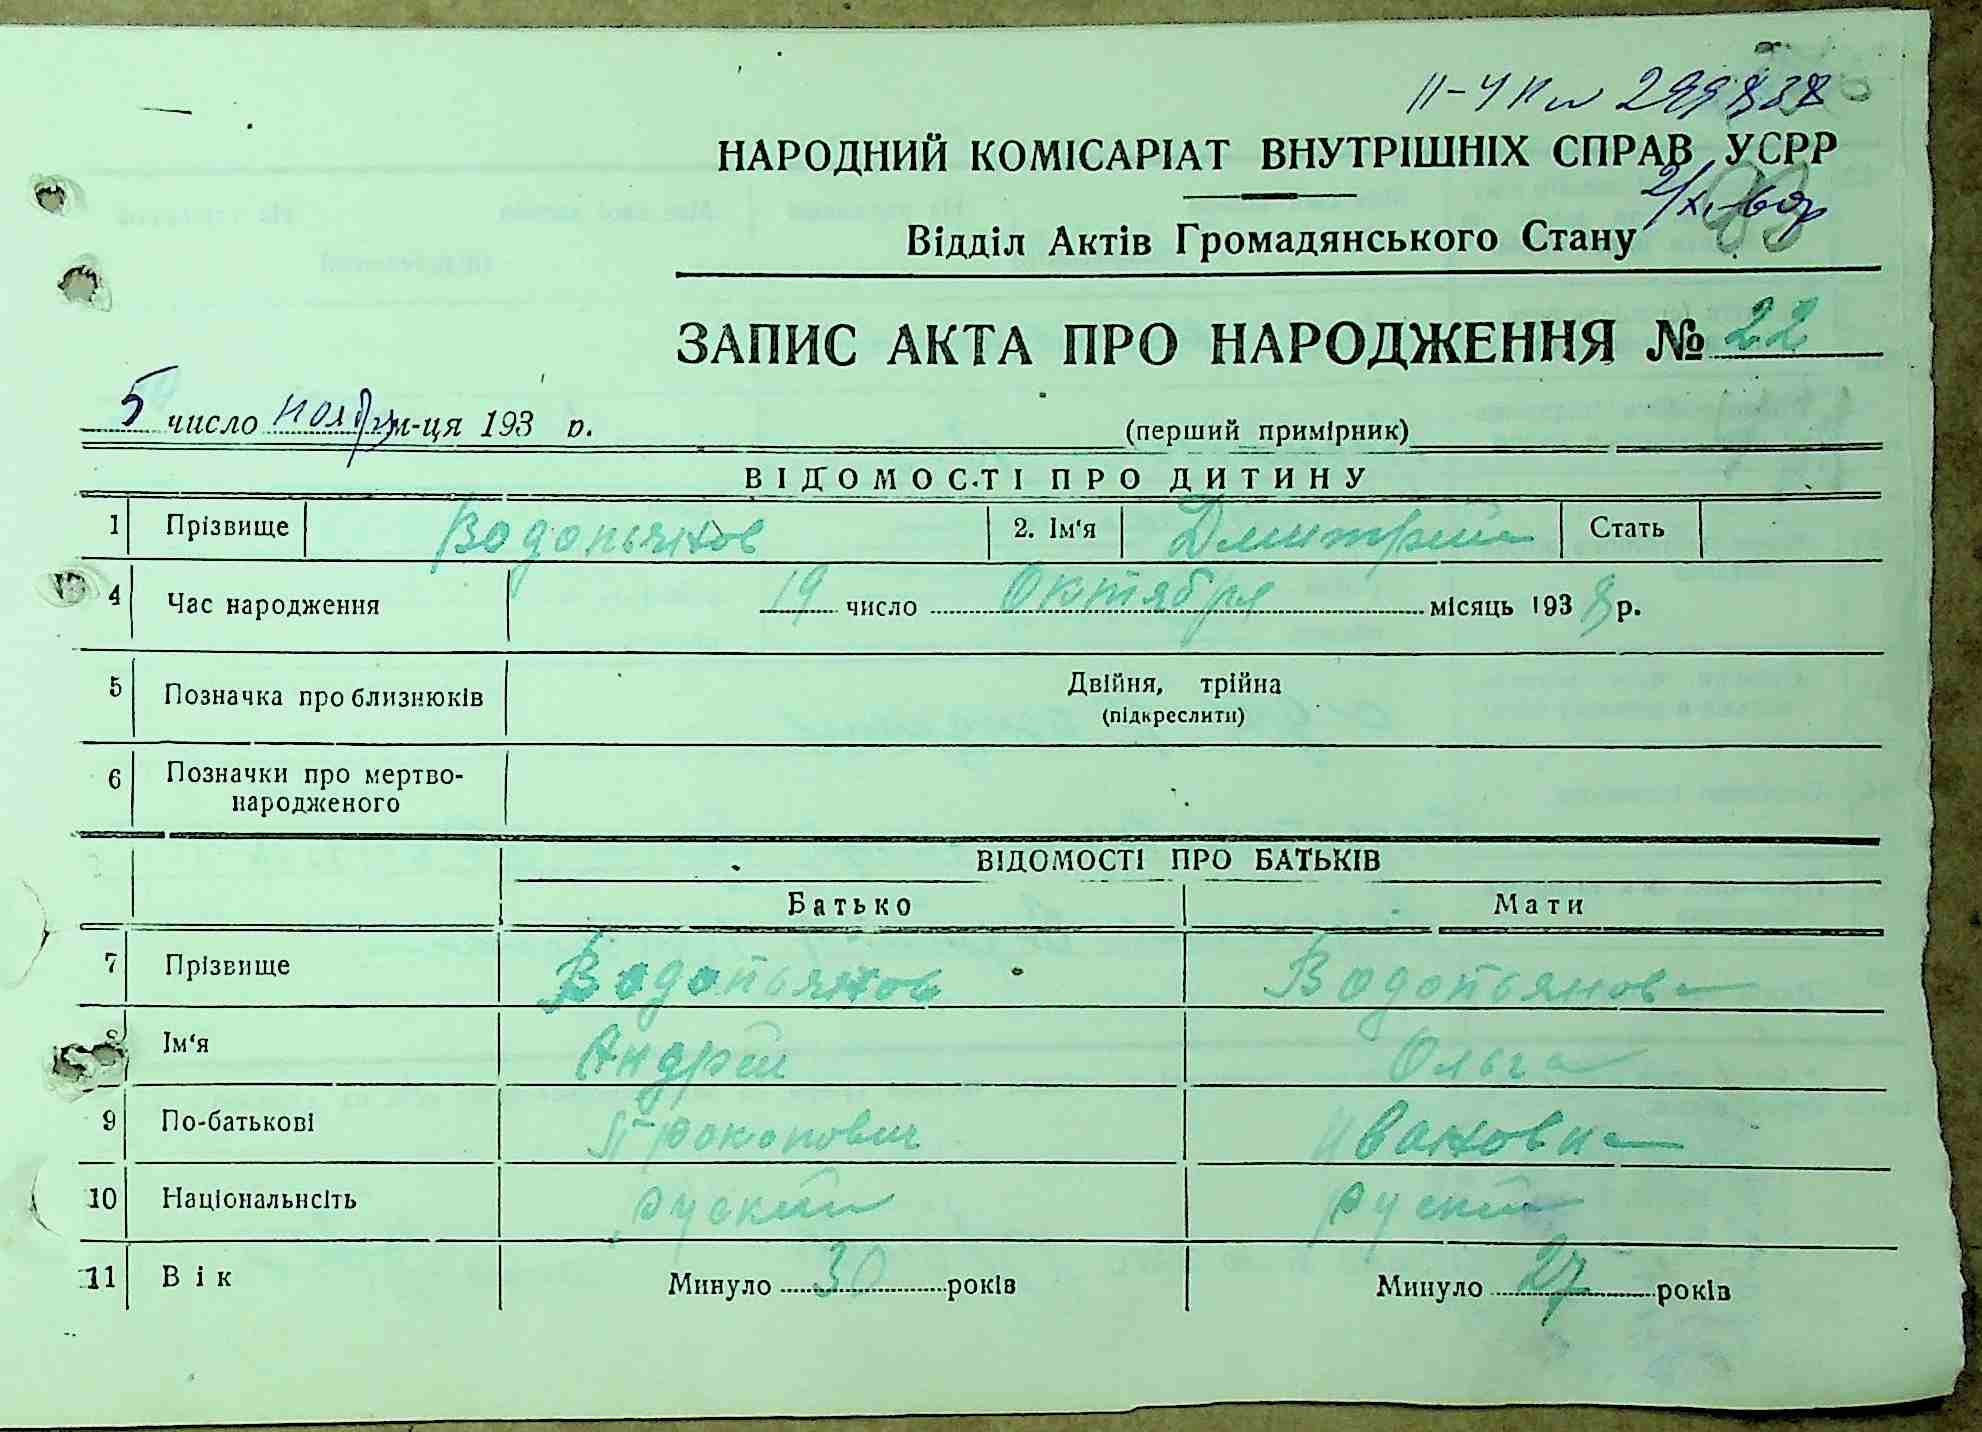 НАРОДНИЙ КОМІСАРІАТ ВНУТРІШНІХ СПРАВ УСРР
Відділ Актів Громадянського Стану
ЗАПИС АКТА ПРО НАРОДЖЕННЯ № 22
5 число ноября м-ця 193 р.
(перший примірник)
ВІДОМОСТІ ПРО ДИТИНУ
1 Прізвище Водопьянов 2. Ім'я Дмитрий Стать
4 Час народження 19 число Октября місяць 193 р.
5 Позначка про близнюків Двійня, трійна
(підкреслити)
6 Позначки про мертво-
народженого
ВІДОМОСТІ ПРО БАТЬКІВ
Батько Мати
7 Прізвище Водопьянов Водопьянова
8 Ім'я Андрей Ольга
9 По-батькові Прокопович Ивановна
10 Національнсіть руский руский
11 Вік Минуло 30 років Минуло 27 років